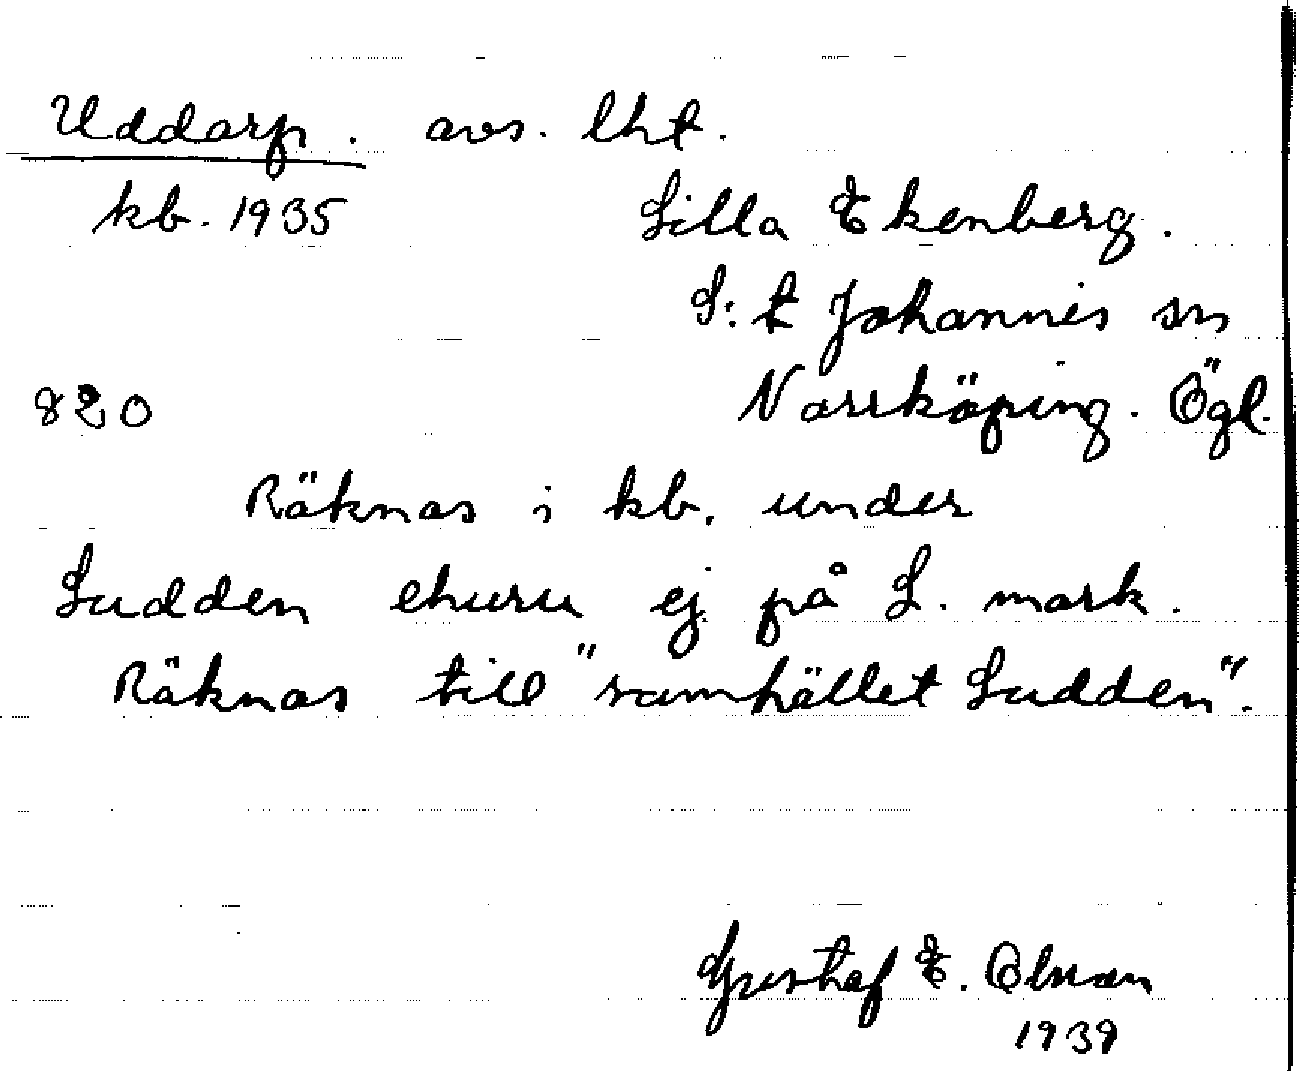 Uddarp. avs. lht.
kb. 1935 Lilla Ekenberg.
S:t Johannis sn
820 Norrköping. Ögl.
Räknas i kb. under
Sudden ehuru ej på S. mark.
Räknas till "samhället Sudden".
Gusthaf E. Olman
1939